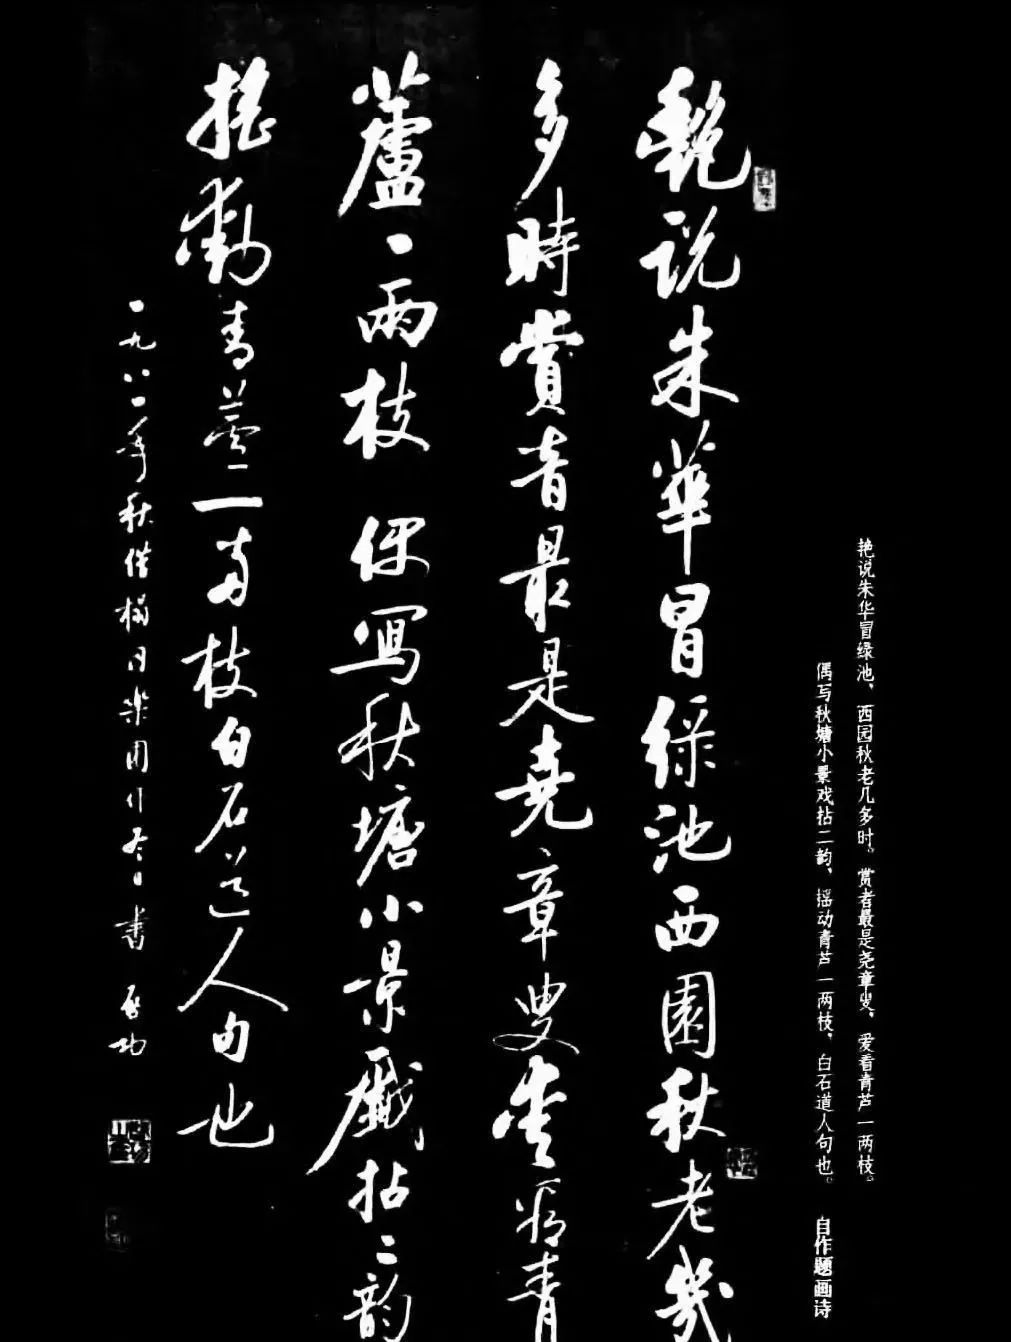 艳说朱华冒绿池、西园秋老几多时。赏者最是尧章叟、爱看青芦一两枝。
偶写秋塘小景戏拈二韵、摇动青芦一两枝、白石道人句也。 自作题画诗
艳说朱華冒緑池西園秋老幾
多時賞音最是堯章叟爱看青
蘆一兩枝 偶写秋塘小景戲拈二韵
摇動青蘆一両枝白石道人句也
一九八一年秋借榻同樂園什冬日書 启功